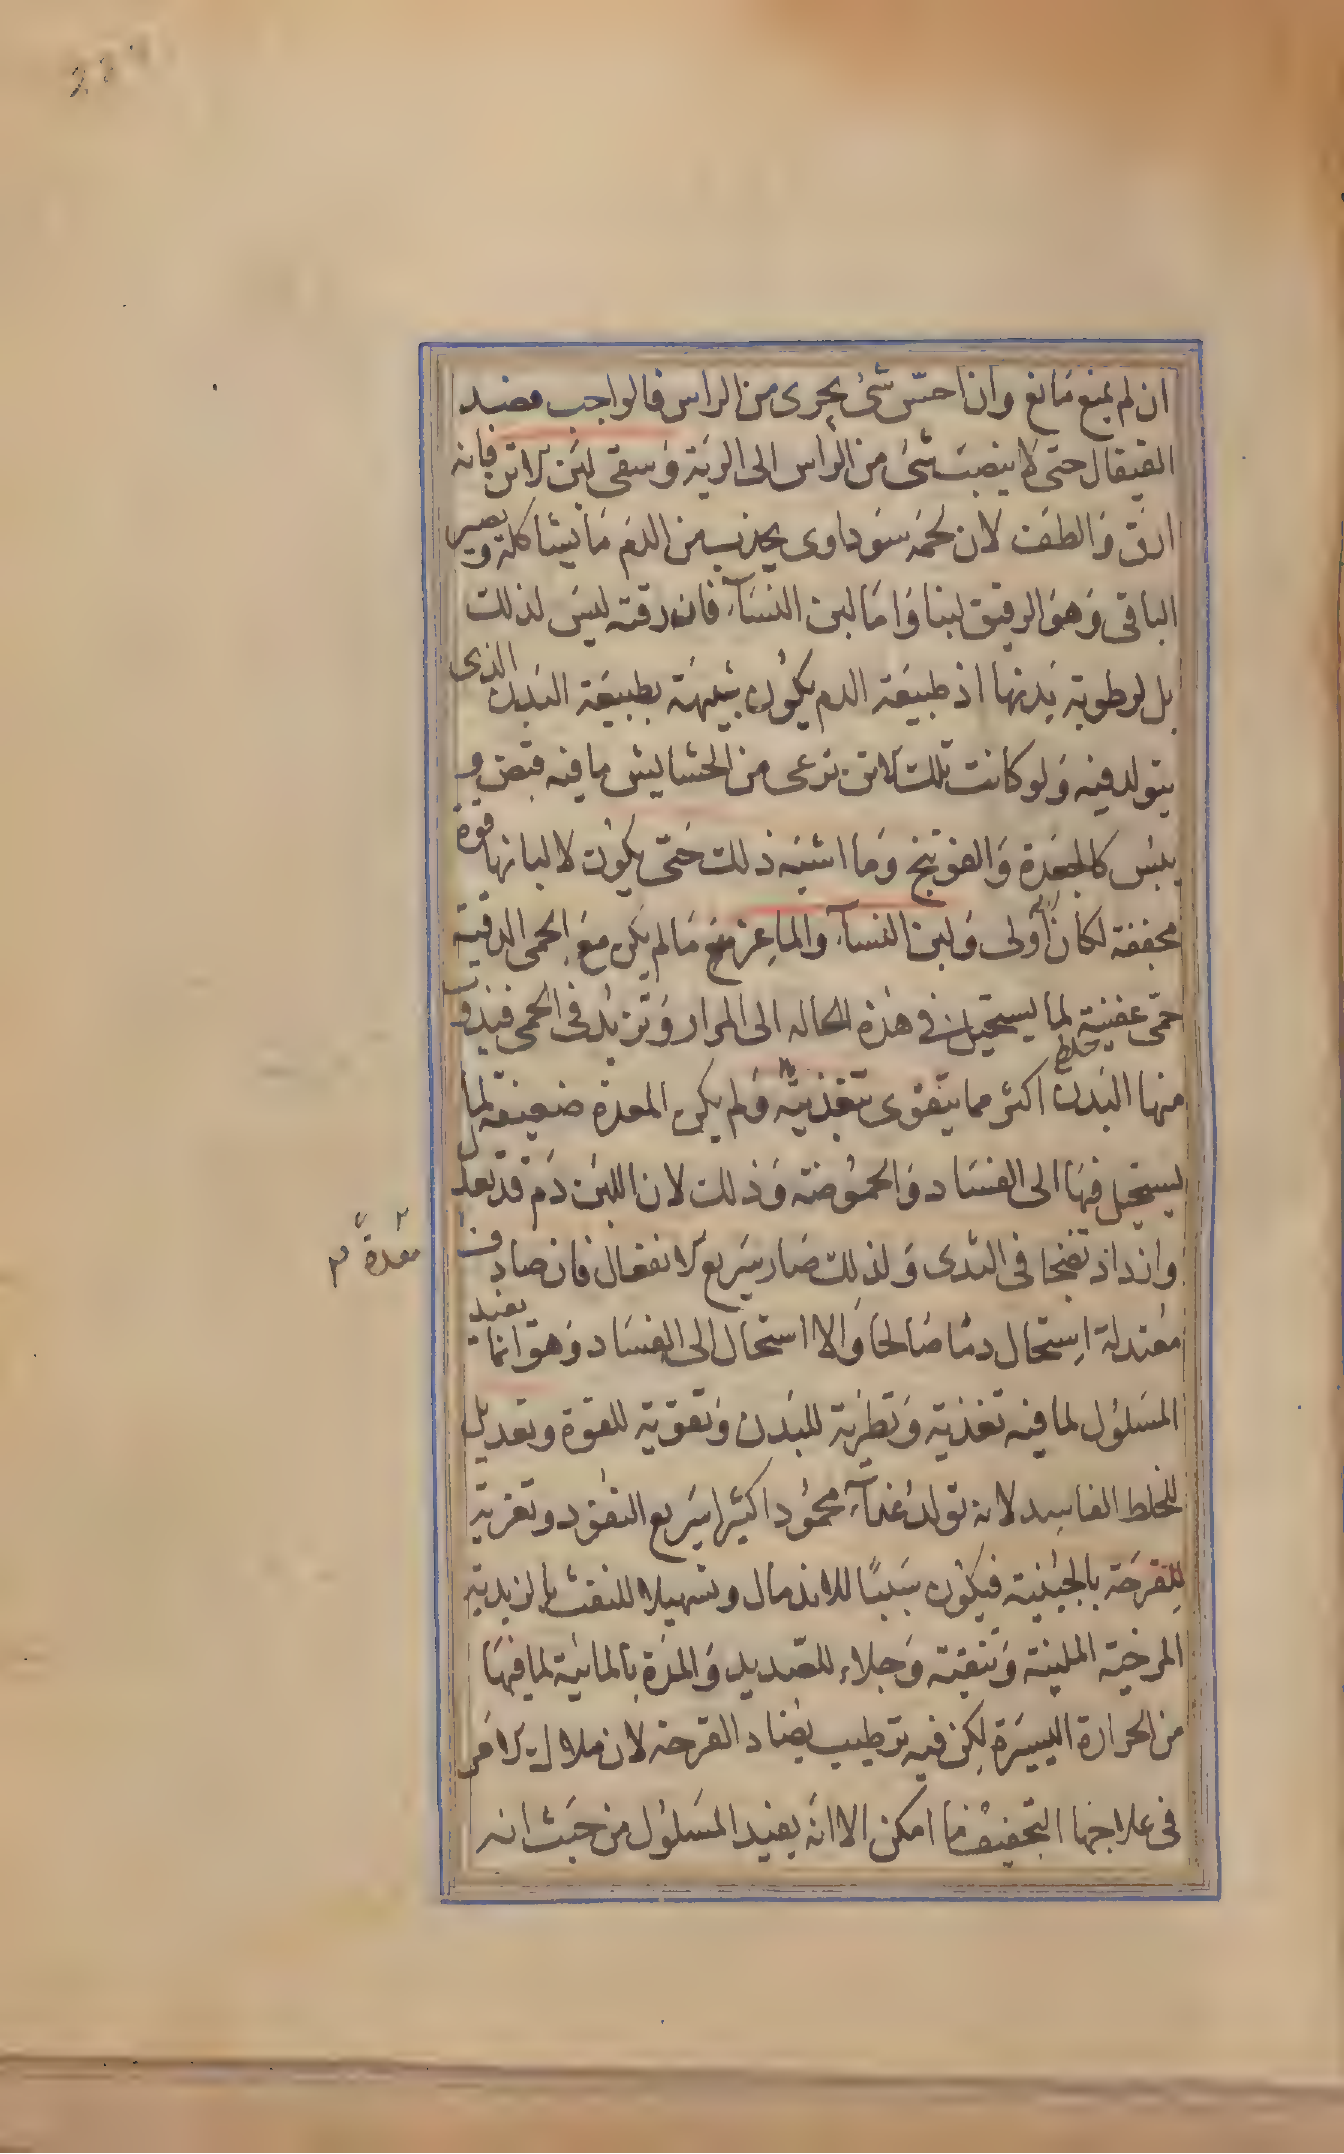 ان لم يمنع مانع وان احسّ شئ يجرى من الراس فالواجب فصد
القيفال حتى لا ينصبّ شئ من الراس الى الرية وسقى لبن الاتن فانه
ارق والطف لان لحمه سوداوى يجذب من الدم ما يشاكله ويصير
الباقى وهو الرقيق لبنا واما لبن النسآء فانه رقته ليس لذلك
بل لرطوبة بدنها اذ طبيعة الدم يكون شبيهة بطبيعة البدن الذى
يتولد فيه ولو كانت تلك الاتن ترعى من الحشايش ما فيه قبض و
يبس كالجعدة والفوتنج وما اشبه ذلك حتى يكون لالبانها قوة
مجففة لكان اولى ولبن النسآء والماعز مع ما لم يكن مع الحمى الدقية
حمّى عفنية لما يستحيل فى هذه الحاله الى المرار وتزيد فى الحمى فيذوب
منها البدن خلط اكثر مما يتقوى بتغذيته ولم يكن المعدة ضعيفة لما
يستحيل فيها الى الفساد والحموضة وذلك لان اللبن دم قد تعدل
وازداد نضجا فى الثدى ولذلك صار سريع الانفعال فان صادف
معدة
معتدلة استحال دما صالحا والا استحال الى الفساد وهو انما يفيد
المسلول لما فيه تغذية وتطرية للبدن وتقوية للقوة وتعديل
للخلط الفاسد لانه تولد غذآء محمودا كثيرا سريع النفود وتغرية
للقرحة بالجبنية فيكون سببا للاندمال وتسهيلا للنفث بالزبدية
المرخية الملينة وتنقية وجلاء للصديد والمدة بالمائية لما فيها
من الحرارة اليسيرة لكن فيه ترطيب يضاد القرحة لان ملاك الامر
فى علاجها التجفيف ما امكن الا انه يفيد المسلول من حيث انه